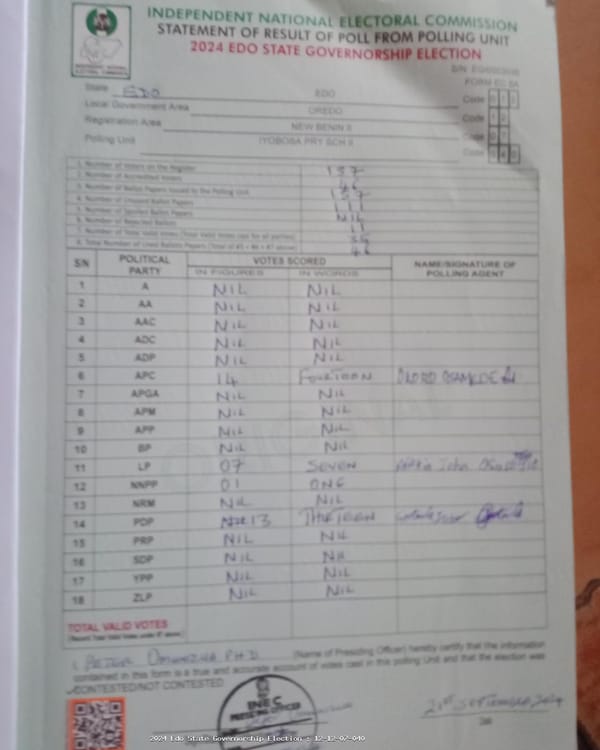 INDEPENDENT NATIONAL ELECTORAL COMMISSION
STATEMENT OF RESULT OF POLL FROM POLLING UNIT
2024 EDO STATE GOVERNORSHIP ELECTION
FORM EC 8A
State EDO EDO Code 012
Local Government Area OREDO Code 12
Registration Area NEW BENIN II Code 07
Polling Unit IYOBOSA PRY SCH II Code 040
1. Number of Voters on the Register 157
2. Number of Accredited Voters 46
3. Number of Ballot Papers Issued to the Polling Unit 157
4. Number of Unused Ballot Papers 111
5. Number of Spoiled Ballot Papers NIL
6. Number of Rejected Ballots 11
7. Number of Total Valid Votes (Total Valid Votes cast for all parties) 35
8. Total Number of Used Ballots Papers (Total of #5 + #6 + #7 above) 46
S/N POLITICAL PARTY VOTES SCORED NAME/SIGNATURE OF POLLING AGENT
IN FIGURES IN WORDS
1 A NIL NIL
2 AA NIL NIL
3 AAC NIL NIL
4 ADC NIL NIL
5 ADP NIL NIL
6 APC 14 FOURTEEN
7 APGA NIL NIL
8 APM NIL NIL
9 APP NIL NIL
10 BP NIL NIL
11 LP 07 SEVEN
12 NNPP 01 ONE
13 NRM NIL NIL
14 PDP 13 THIRTEEN
15 PRP NIL NIL
16 SDP NIL NIL
17 YPP NIL NIL
18 ZLP NIL NIL
TOTAL VALID VOTES
I, PH.D (Name of Presiding Officer) hereby certify that the information
contained in this form is a true and accurate account of votes cast in this polling Unit and that the election was
CONTESTED/NOT CONTESTED
INEC
PRESIDING OFFICER
21ST SEPTEMBER, 2024
2024 Edo State Governorship Election : 12-12-07-040